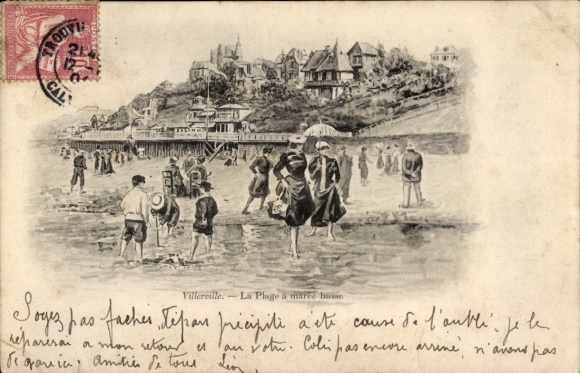 TROUVI
21
12
CAL
Villerville. — La Plage à marée basse
Soyez pas fachés, Départ précipité a été cause de l'oubli. je le
réparerai a mon retour et au votre. Colis pas encore arrivé, n'avons pas
de gare ici. Amitiés de tous Léon